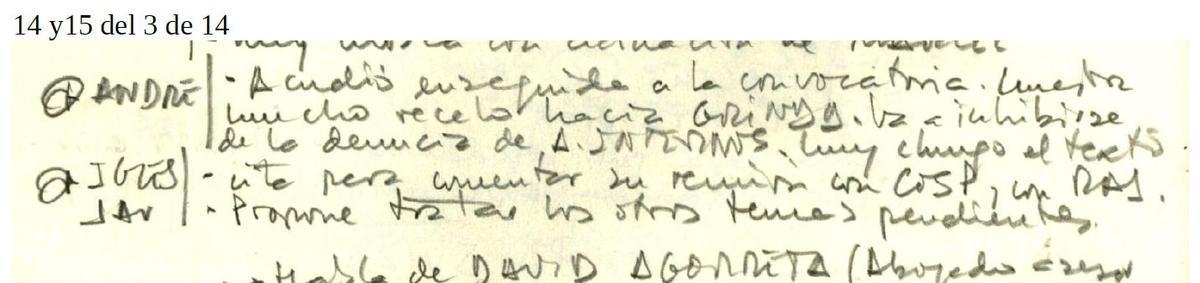 14 y15 del 3 de 14
muy con actuación de
ANDRÉ - Acudió enseguida a la convocatoria. Muestra
mucho recelo hacia GRINDA. Va a inhibirse
de la denuncia de A. INTERNOS. Muy chungo el texto.
IGLES - cita para comentar su reunión con COSP, con RAJ.
JAV - Propone tratar los otros temas pendientes.
- Habla de DAVID AGORRETA (Abogado asesor